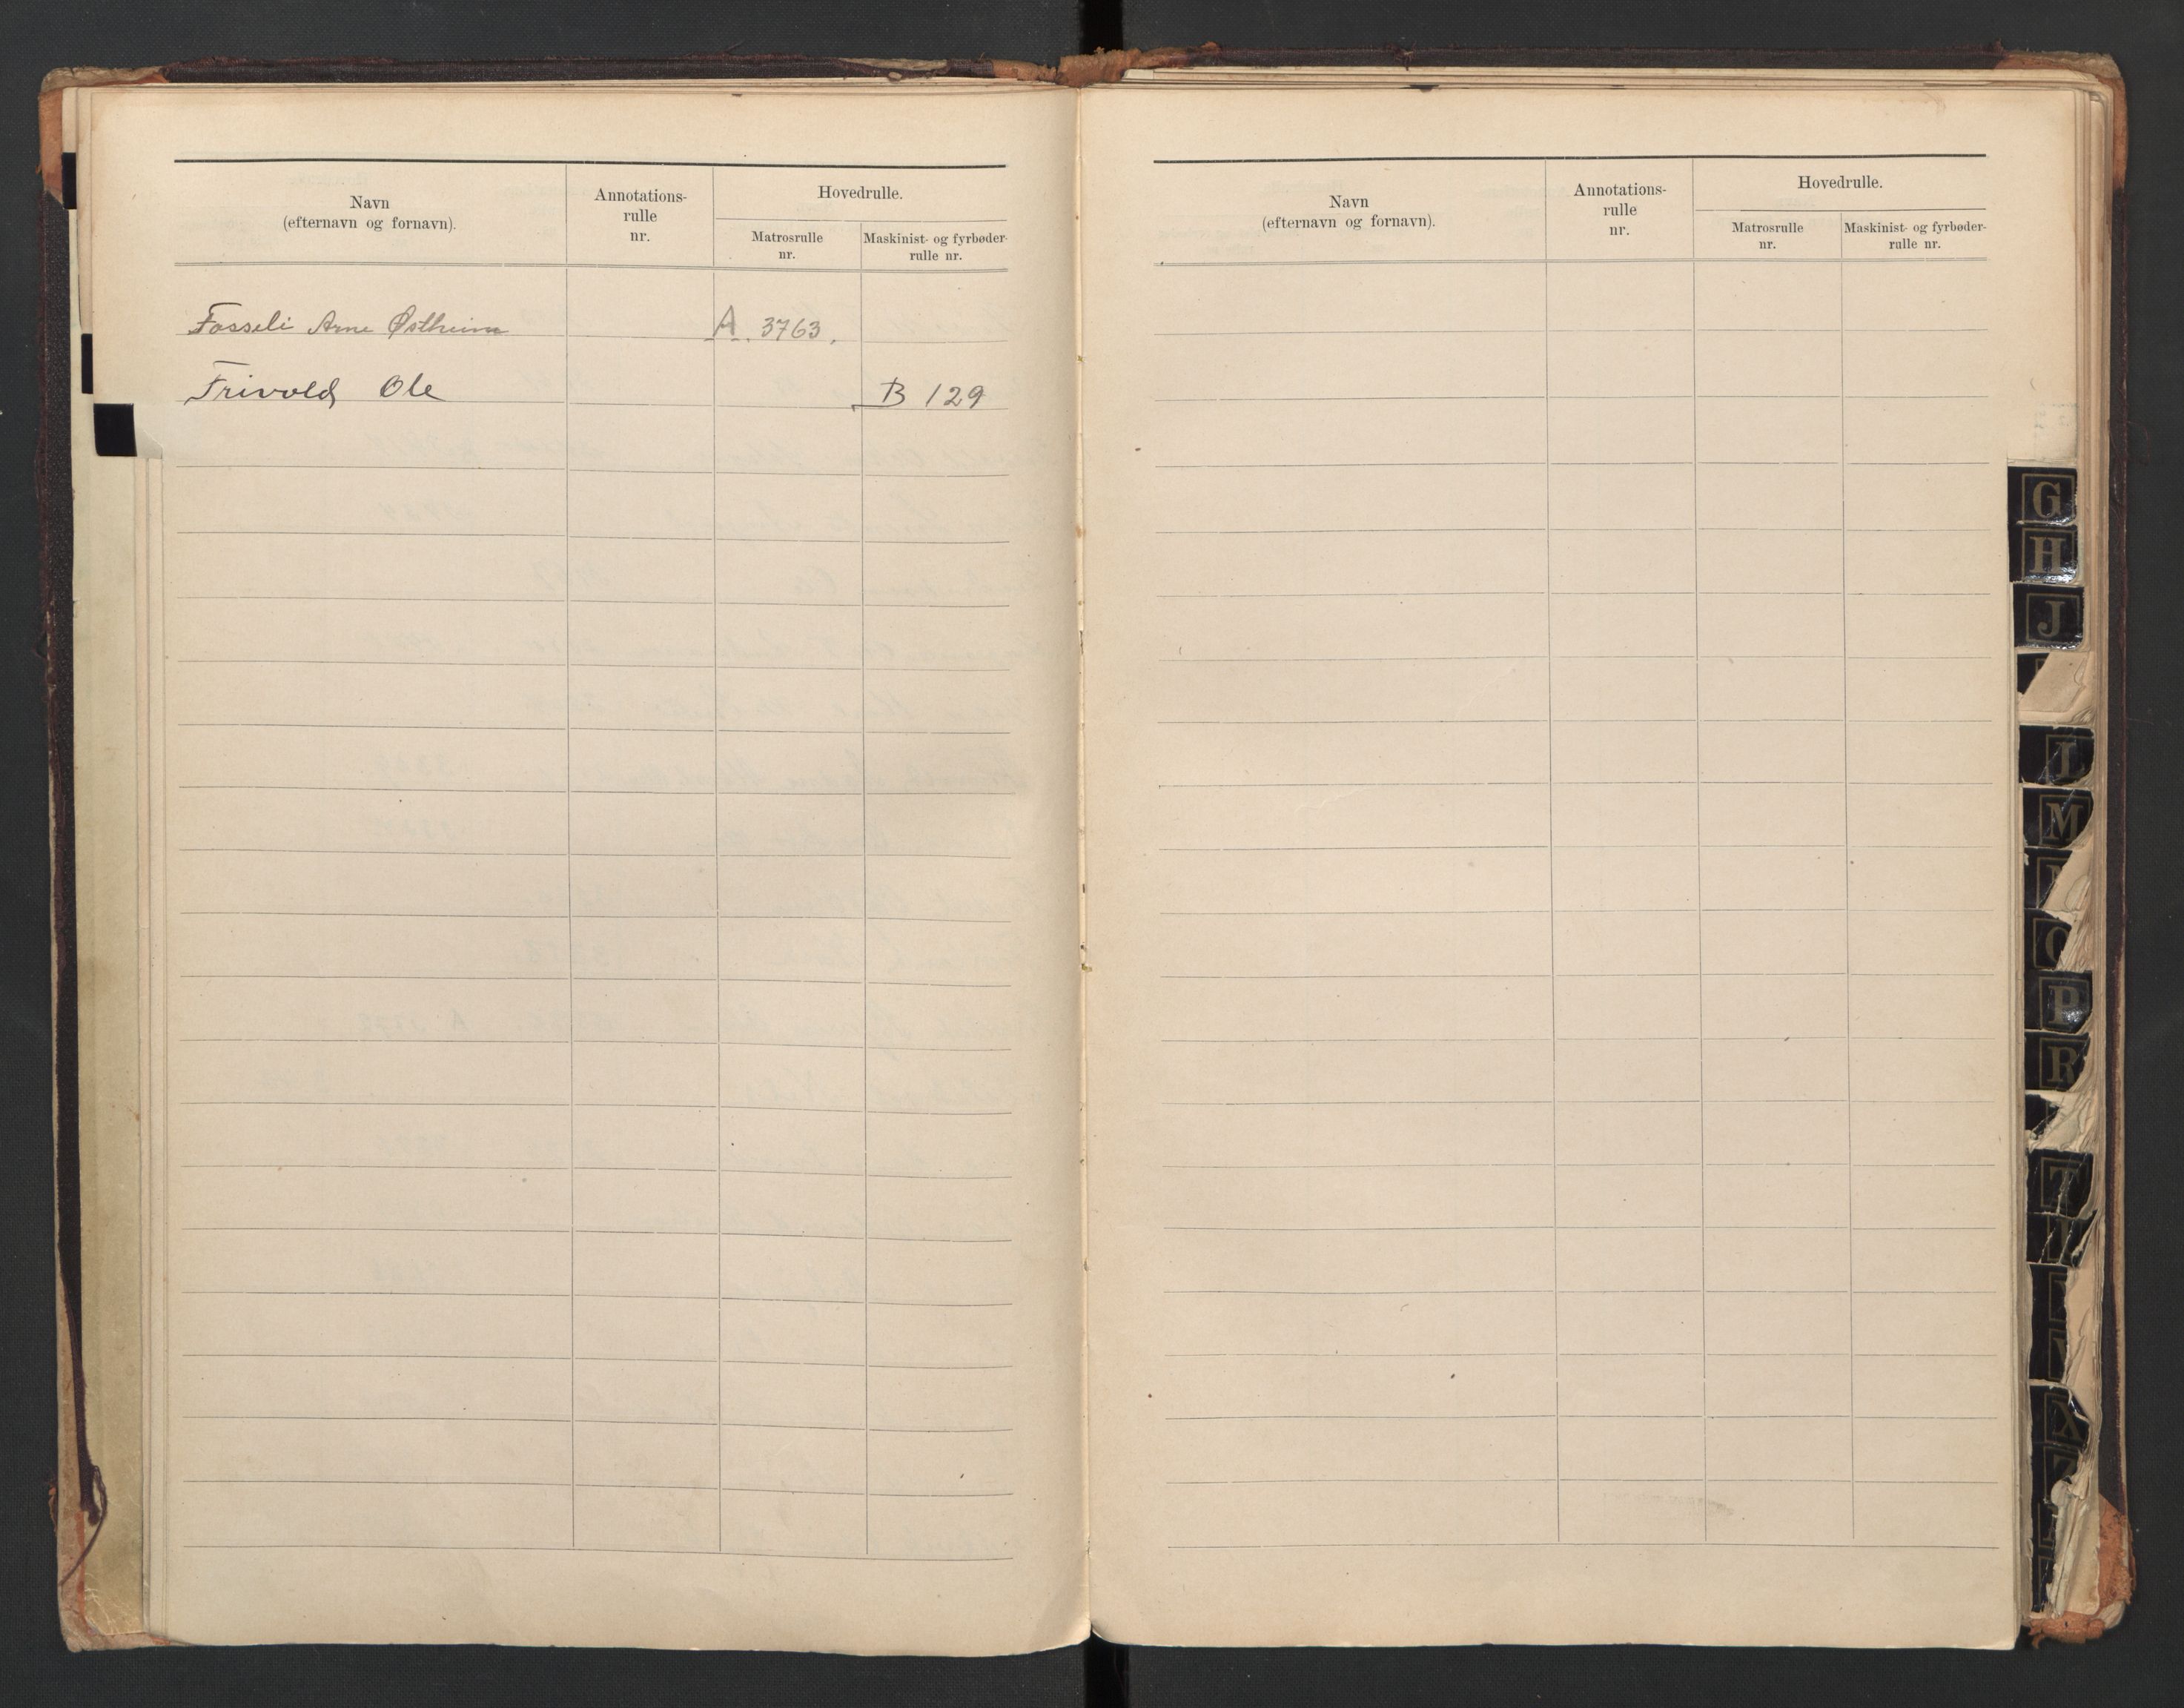 Navn
(efternavn og fornavn).
Annotations-
rulle
nr.
Hovedrulle.
Matrosrulle
nr.
Maskinist- og fyrbøder-
rulle nr.
Fosseli Arne Østheim A. 3763.
Frivold Ole B 129
Navn
(efternavn og fornavn).
Annotations-
rulle
nr.
Hovedrulle.
Matrosrulle
nr.
Maskinist- og fyrbøder-
rulle nr.
G
H
J
L
M
P
R
T
X